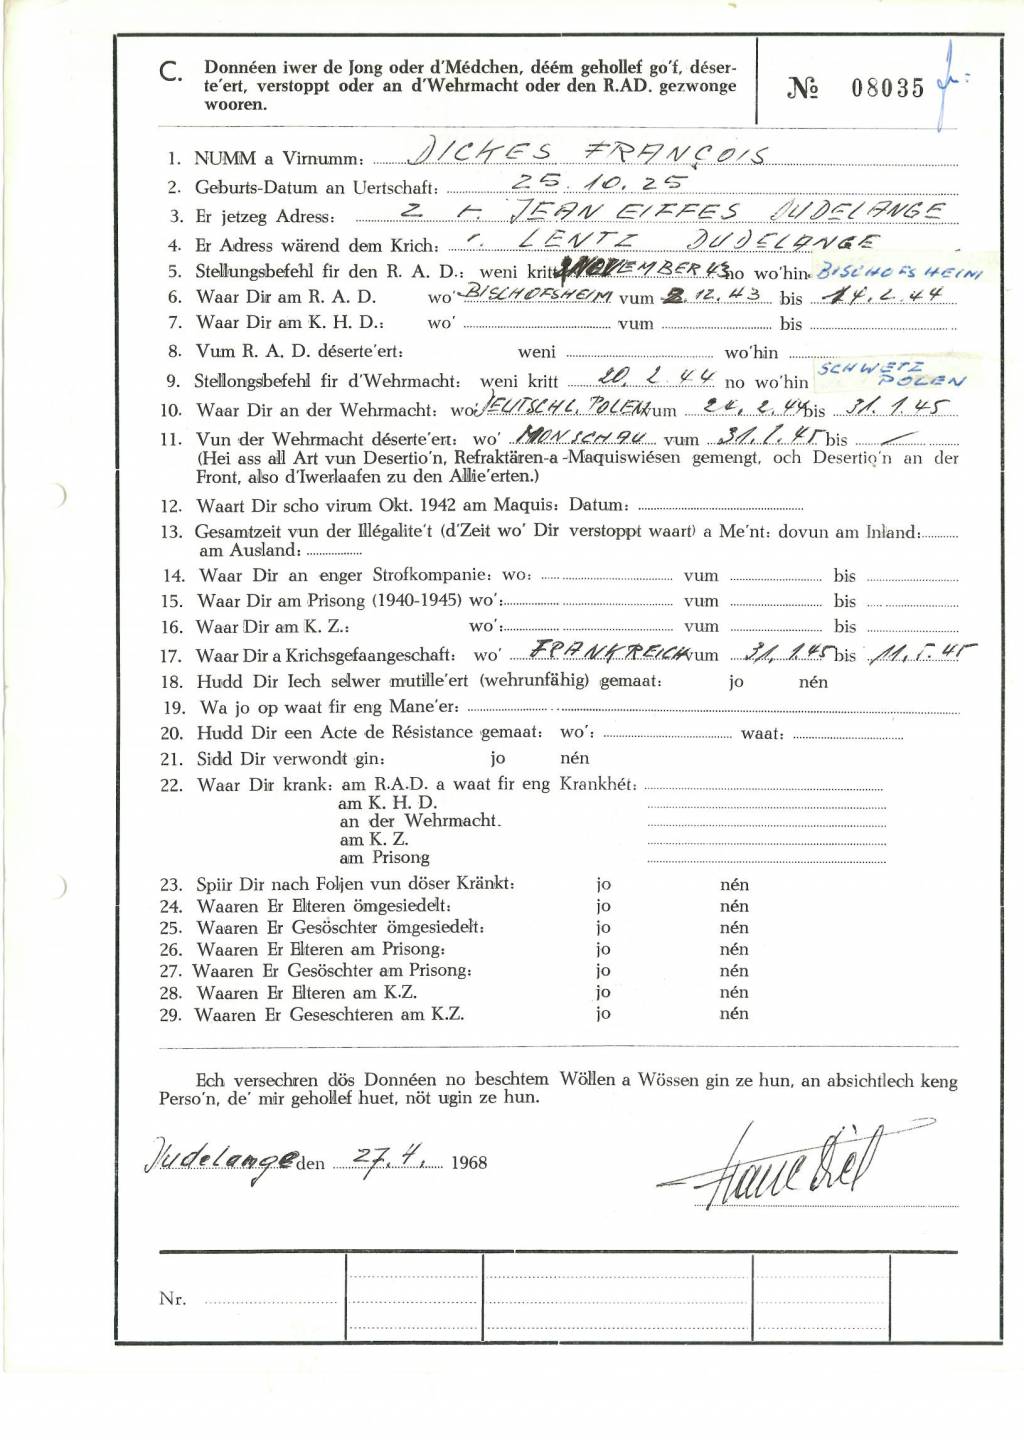 C. Donnéen iwer de Jong oder d'Médchen, déém gehollef go'f, déser-
te'ert, verstoppt oder an d'Wehrmacht oder den R.AD. gezwonge
wooren.
№ 08035
1. NUMM a Virnumm: DICKES FRANÇOIS
2. Geburts-Datum an Uertschaft: 25.10.25
3. Er jetzeg Adress: 2 r. JEAN EIFFES DUDELANGE
4. Er Adress wärend dem Krich: r. LENTZ DUDELANGE
5. Stellungsbefehl fir den R. A. D.: weni kritt NOVEMBER 43 no wo'hin BISCHOFSHEIM
6. Waar Dir am R. A. D. wo' BISCHOFSHEIM vum 2.12.43 bis 14.2.44
7. Waar Dir am K. H. D.: wo' vum bis
8. Vum R. A. D. déserte'ert: weni wo'hin
9. Stellongsbefehl fir d'Wehrmacht: weni kritt 20.2.44 no wo'hin SCHWETZ POLEN
10. Waar Dir an der Wehrmacht: wo: DEUTSCHL. POLEN vum 2.44 bis 31.1.45
11. Vun der Wehrmacht déserte'ert: wo' MONSCHAU vum 31.1.45 bis —
(Hei ass all Art vun Desertio'n, Refraktären-a-Maquiswiésen gemengt, och Desertio'n an der
Front, also d'Iwerlaafen zu den Allie'erten.)
12. Waart Dir scho virum Okt. 1942 am Maquis: Datum:
13. Gesamtzeit vun der Illégalite't (d'Zeit wo' Dir verstoppt waart) a Me'nt: dovun am Inland:
am Ausland:
14. Waar Dir an enger Strofkompanie: wo: vum bis
15. Waar Dir am Prisong (1940-1945) wo': vum bis
16. Waar Dir am K. Z.: wo': vum bis
17. Waar Dir a Krichsgefaangeschaft: wo' FRANKREICH vum 31.1.45 bis 11.5.45
18. Hudd Dir Iech selwer mutille'ert (wehrunfähig) gemaat: jo nén
19. Wa jo op waat fir eng Mane'er:
20. Hudd Dir een Acte de Résistance gemaat: wo': waat:
21. Sidd Dir verwondt gin: jo nén
22. Waar Dir krank: am R.A.D. a waat fir eng Krankhét:
am K. H. D.
an der Wehrmacht.
am K. Z.
am Prisong
23. Spiir Dir nach Foljen vun döser Kränkt: jo nén
24. Waaren Er Elteren ömgesiedelt: jo nén
25. Waaren Er Gesöschter ömgesiedelt: jo nén
26. Waaren Er Elteren am Prisong: jo nén
27. Waaren Er Gesöschter am Prisong: jo nén
28. Waaren Er Elteren am K.Z. jo nén
29. Waaren Er Geseschteren am K.Z. jo nén
Ech versechren dös Donnéen no beschtem Wöllen a Wössen gin ze hun, an absichtlech keng
Perso'n, de' mir gehollef huet, nöt ugin ze hun.
Dudelange den 27.4. 1968
Nr.